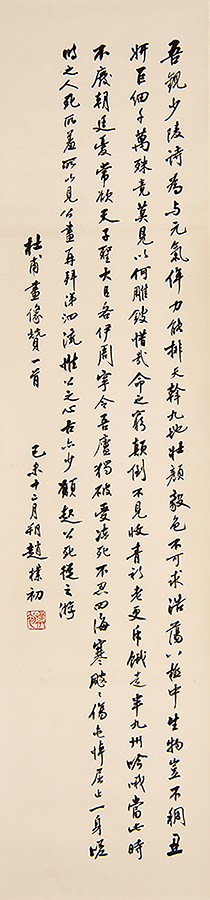 吾觀少陵詩為与元氣侔力能排天斡九地壯顏毅色不可求浩蕩八極中生物豈不稠丑
妍巨細千萬殊竟莫見以何雕鎪惜哉命之窮顛倒不見收青衫老更斥餓走半九州吟哦當此時
不廢朝廷憂常欲天子聖大臣各伊周寧令吾廬獨破受凍死不忍四海寒颼〻傷屯悼屈止一身嗟
時之人死所羞所以見公畫再拜涕泗流惟公之心古亦少願起公死從之游
杜甫畫像贊一首
己未十二月朔趙樸初